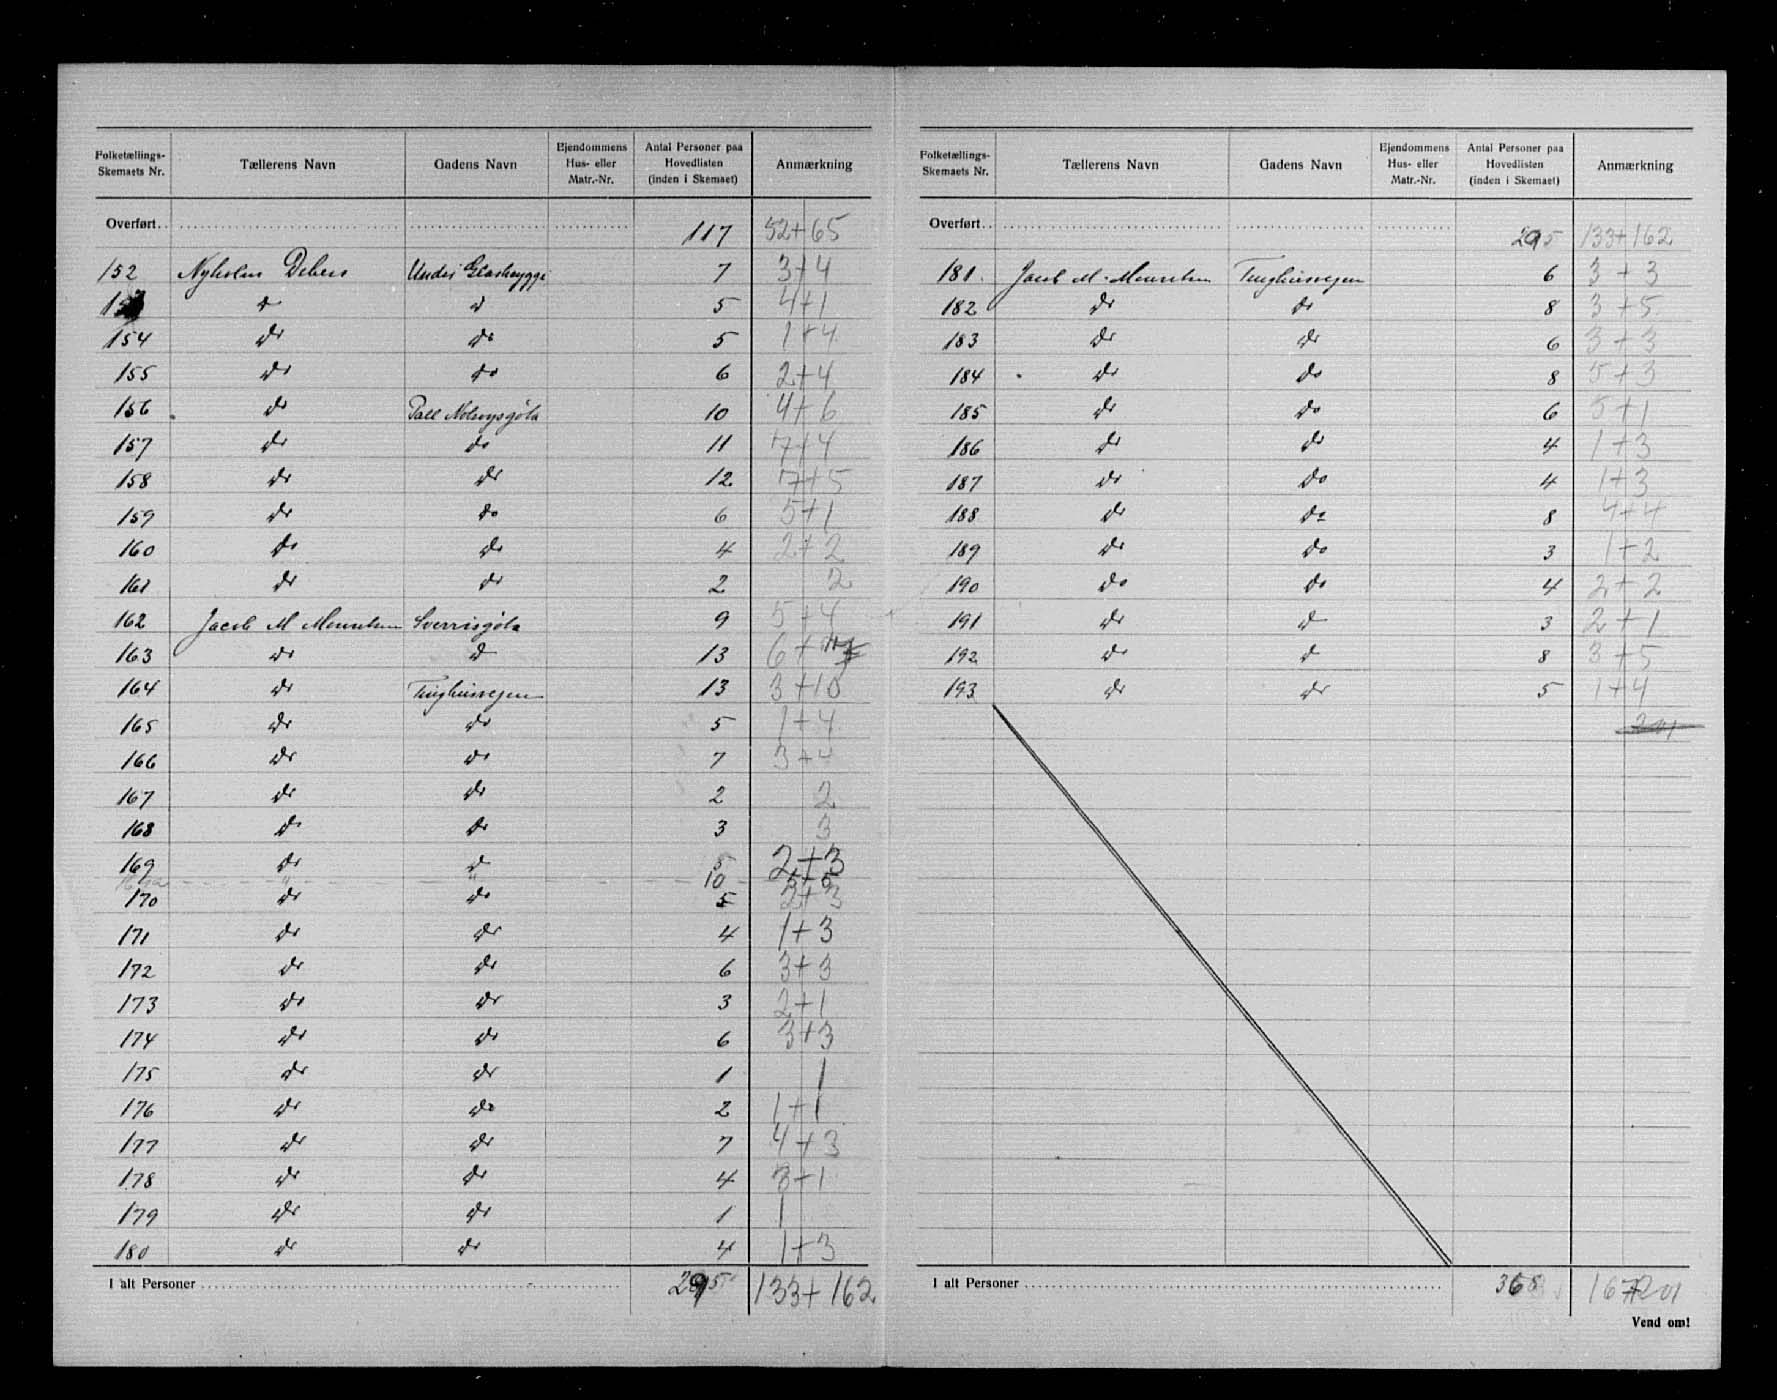 Folketællings-Skemaets Nr. Tællerens Navn Gadens Navn Ejendommens Hus- eller Matr.-Nr. Antal Personer paa Hovedlisten (inden i Skemaet) Anmærkning
Overført 117 52+65
152 Nyholm Debes Undir Glashuyggi 7 3+4
153 do do 5 4+1
154 do do 5 1+4
155 do do 6 2+4
156 do Páll Nolsoysgöta 10 4+6
157 do do 11 7+4
158 do do 12 7+5
159 do do 6 5+1
160 do do 4 2+2
161 do do 2 2
162 Jacob M Mouritsen Sverrisgöta 9 5+4
163 do do 13 6+7
164 do Tinghúsvegin 13 3+10
165 do do 5 1+4
166 do do 7 3+4
167 do do 2 2
168 do do 3 3
169 do do 5 2+3
169a " " 10 5+5
170 do do 5 2+3
171 do do 4 1+3
172 do do 6 3+3
173 do do 3 2+1
174 do do 6 3+3
175 do do 1 1
176 do do 2 1+1
177 do do 7 4+3
178 do do 4 3+1
179 do do 1 1
180 do do 4 1+3
I alt Personer 295 133+162
Folketællings-Skemaets Nr. Tællerens Navn Gadens Navn Ejendommens Hus- eller Matr.-Nr. Antal Personer paa Hovedlisten (inden i Skemaet) Anmærkning
Overført 295 133+162
181 Jacob M. Mouritsen Tinghúsvegin 6 3+3
182 do do 8 3+5
183 do do 6 3+3
184 do do 8 5+3
185 do do 6 5+1
186 do do 4 1+3
187 do do 4 1+3
188 do do 8 4+4
189 do do 3 1+2
190 do do 4 2+2
191 do do 3 2+1
192 do do 8 3+5
193 do do 5 1+4
201
I alt Personer 368 167+201
Vend om!